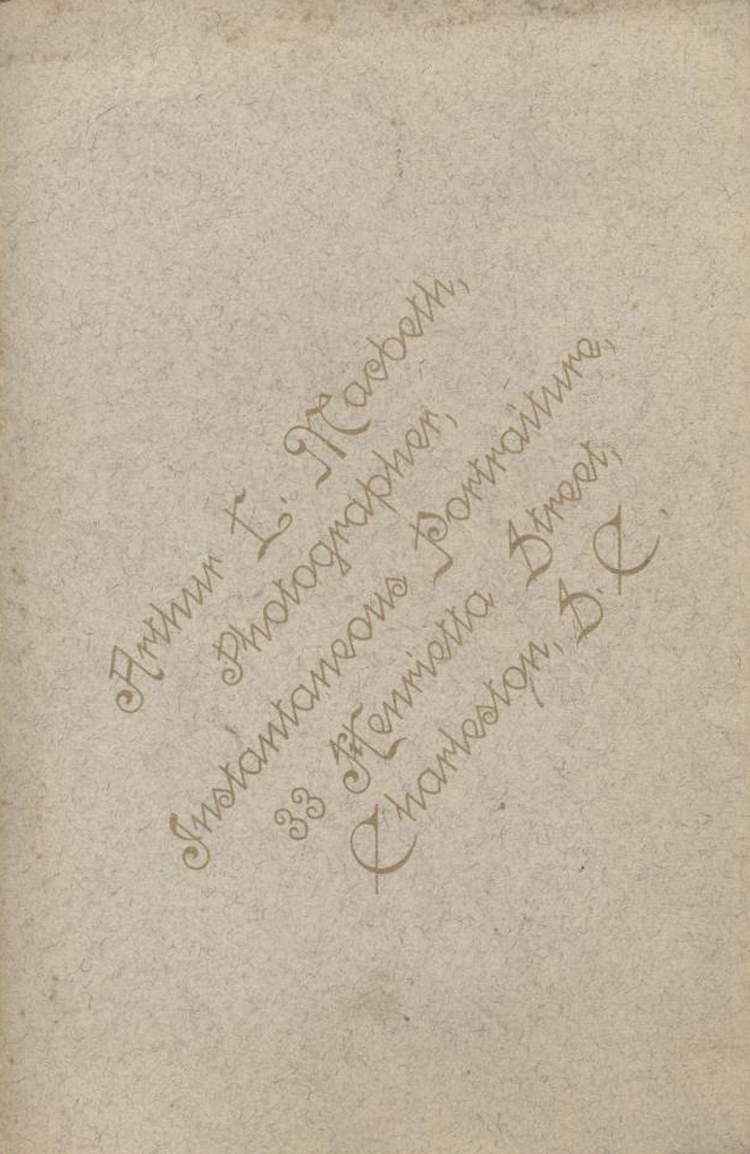 Arthur L. Macbeth,
Photographer,
Instantaneous Portraiture,
33 Henrietta Street,
Charleston, S.C.